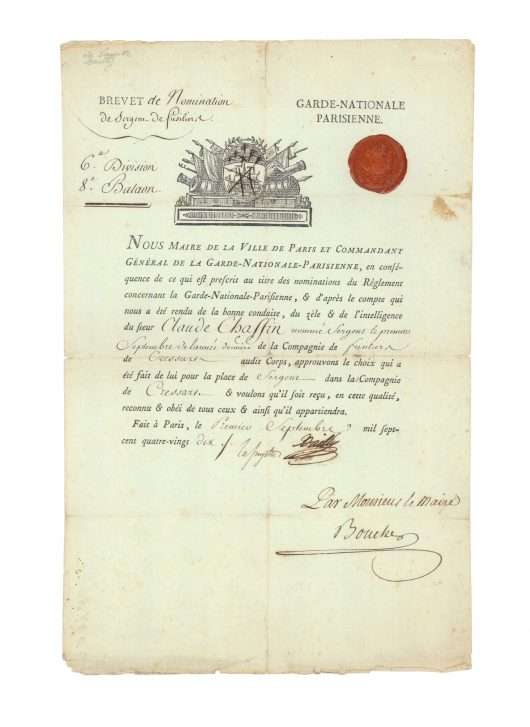 BREVET de Nomination
de Sergent de fusiliers
GARDE-NATIONALE
PARISIENNE.
6e Division
8e Bataon
NOUS MAIRE DE LA VILLE DE PARIS ET COMMANDANT
GÉNÉRAL DE LA GARDE-NATIONALE-PARISIENNE, en consé-
quence de ce qui est prescrit au titre des nominations du Réglement
concernant la Garde-Nationale-Parisienne, & d'après le compte qui
nous a été rendu de la bonne conduite, du zèle & de l'intelligence
du sieur Claude Chaffin nommé Sergent le premier
Septembre de l'année dernière de la Compagnie de fusiliers
de audit Corps, approuvons le choix qui a
été fait de lui pour la place de Sergent dans la Compagnie
de & voulons qu'il soit reçu, en cette qualité,
reconnu & obéi de tous ceux & ainsi qu'il appartiendra.
Fait à Paris, le Premier Septembre mil sept-
cent quatre-vingt dix ./.
lafayette Bailly
Par Monsieur le Maire
Boucher